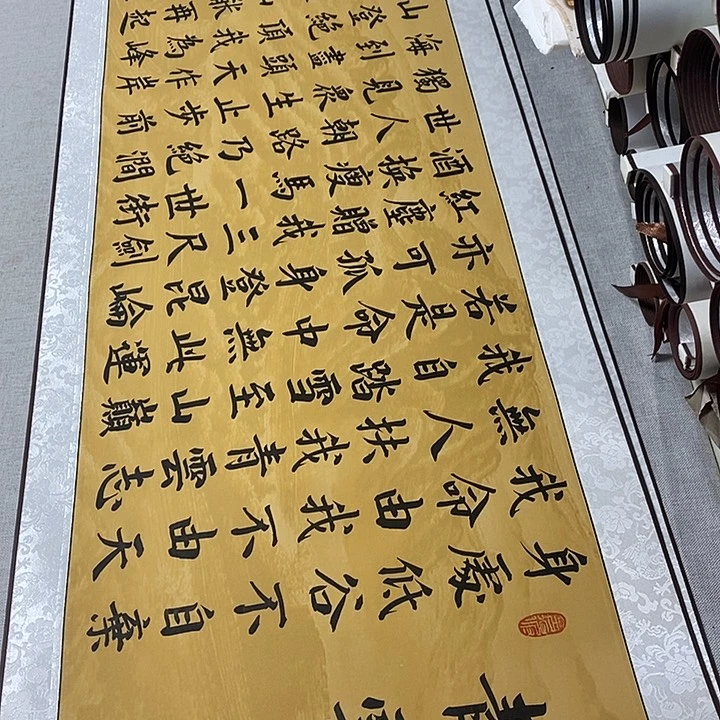 青雲
身處低谷不自棄
我命由我不由天
無人扶我青雲志
我自踏雪至山巔
若是命中無此運
亦可孤身登昆崘
紅塵贈我三尺劍
酒換瘦馬一世街
世人朝路乃絕澗
獨見眾生止步前
海到盡頭天作岸
山登絕頂我為峰
再起